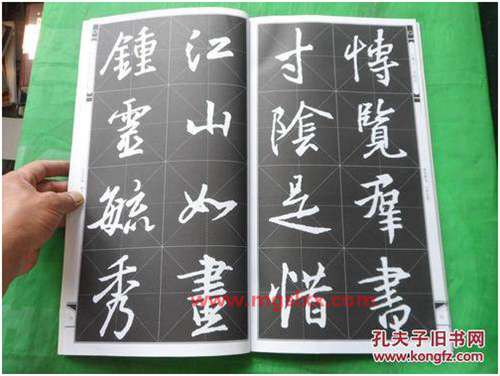 博覽羣書
寸陰是惜
江山如畫
鍾靈毓秀
www.mgslxx.com
孔夫子旧书网
www.kongfz.com